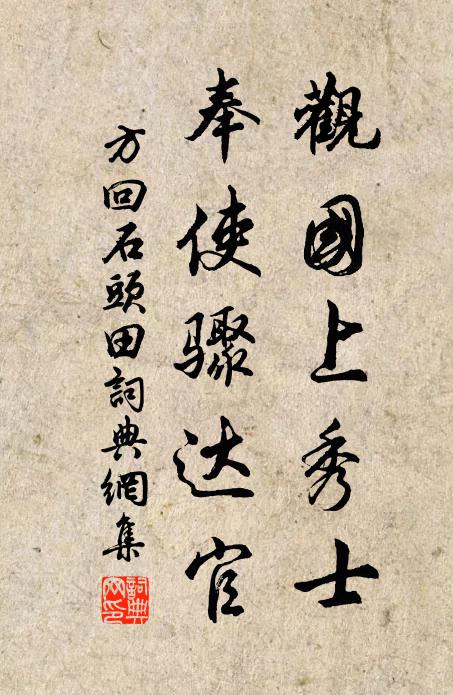 觀國上秀士
奉使驟达官
方回石頭田詞典網集
詞典
网印